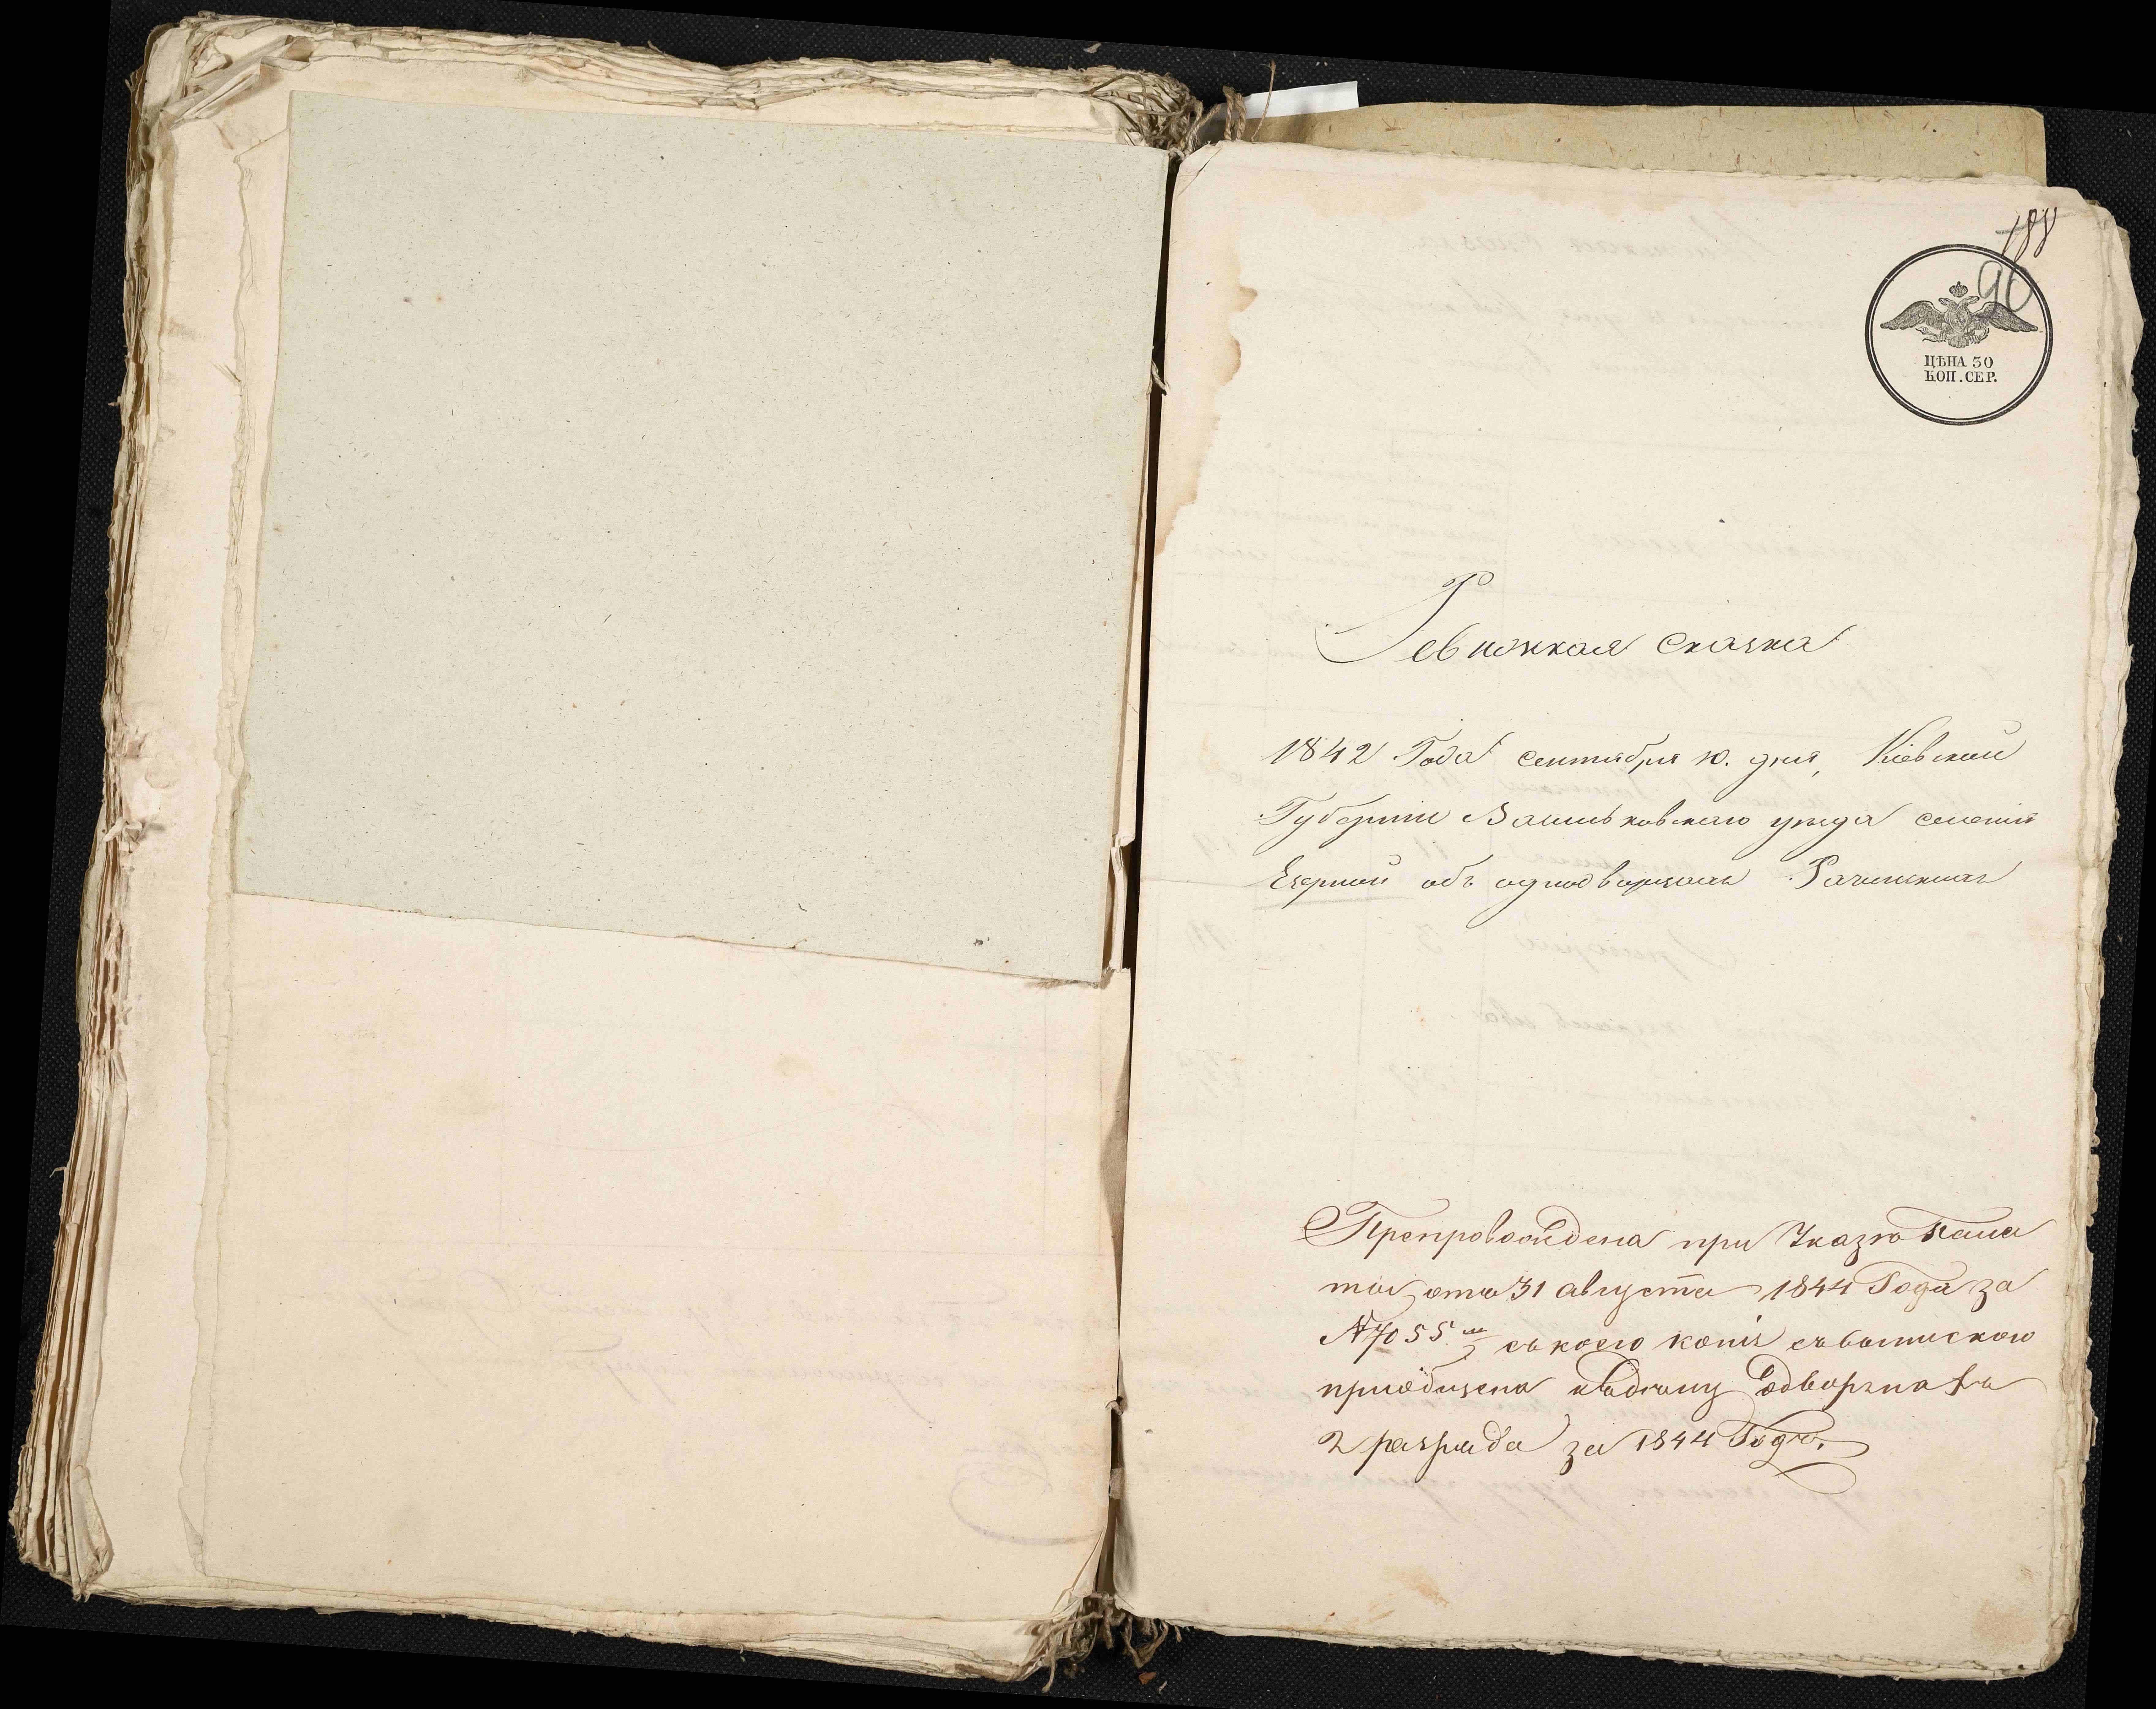 188
90
ЦѢНА 30
КОП. СЕР.
Ревижская сказка
1842 Года сентября 10. дня, Кіевской
Губерніи Васильковскаго уѣзда селенія
Езерной объ однодворцахъ Рачинскихъ
Препровождена при Указѣ Пала
ты отъ 31 августа 1844 Года за
№ 7055 съ коего копія съ выпискою
пріобщена къ дѣлу
2 разряда за 1844 Годъ.